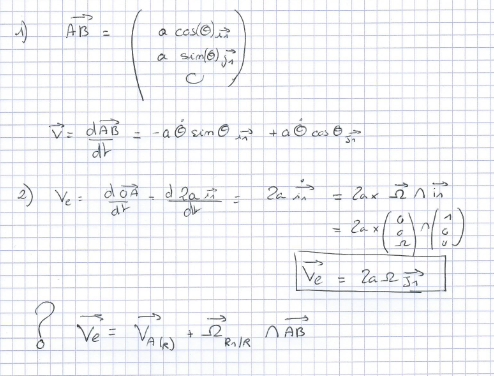 1) \vec{AB} = \begin{pmatrix} a \cos(\theta) \vec{i_1} \\ a \sin(\theta) \vec{j_1} \\ C \end{pmatrix}
\vec{V} = \frac{d\vec{AB}}{dt} = -a \dot{\theta} \sin\theta \vec{i_1} + a \dot{\theta} \cos\theta \vec{j_1}
2) V_e = \frac{d\vec{OA}}{dt} = \frac{d 2a \vec{i_1}}{dt} = 2a \dot{\vec{i_1}} = 2a \times \vec{\Omega} \wedge \vec{i_1}
= 2a \times \begin{pmatrix} 0 \\ 0 \\ \Omega \end{pmatrix} \wedge \begin{pmatrix} 1 \\ 0 \\ 0 \end{pmatrix}
\vec{V_e} = 2a \Omega \vec{j_1}
? \vec{V_e} = \vec{V}_{A(R)} + \vec{\Omega}_{R_1/R} \wedge \vec{AB}